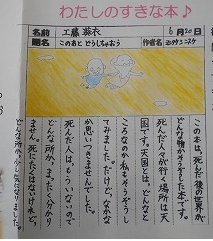 わたしのすきな本♪
名前 工藤 葵衣
6月20日
題名 このあと どうしちゃおう
作者名 ヨシタケシンスケ
この本は、死んだ後の世界が
どんな物か考えた本です。
死んだ人々が行く場所は天
国です。天国とは、どんなと
ころなのか私もそうぞうし
てみました。だけど、なかな
か思いつきませんでした。
死んだ人は、もういないので
どんな所か、まったく分かり
ません。死にたくはないけれど、
どんな所か少し気になりました。